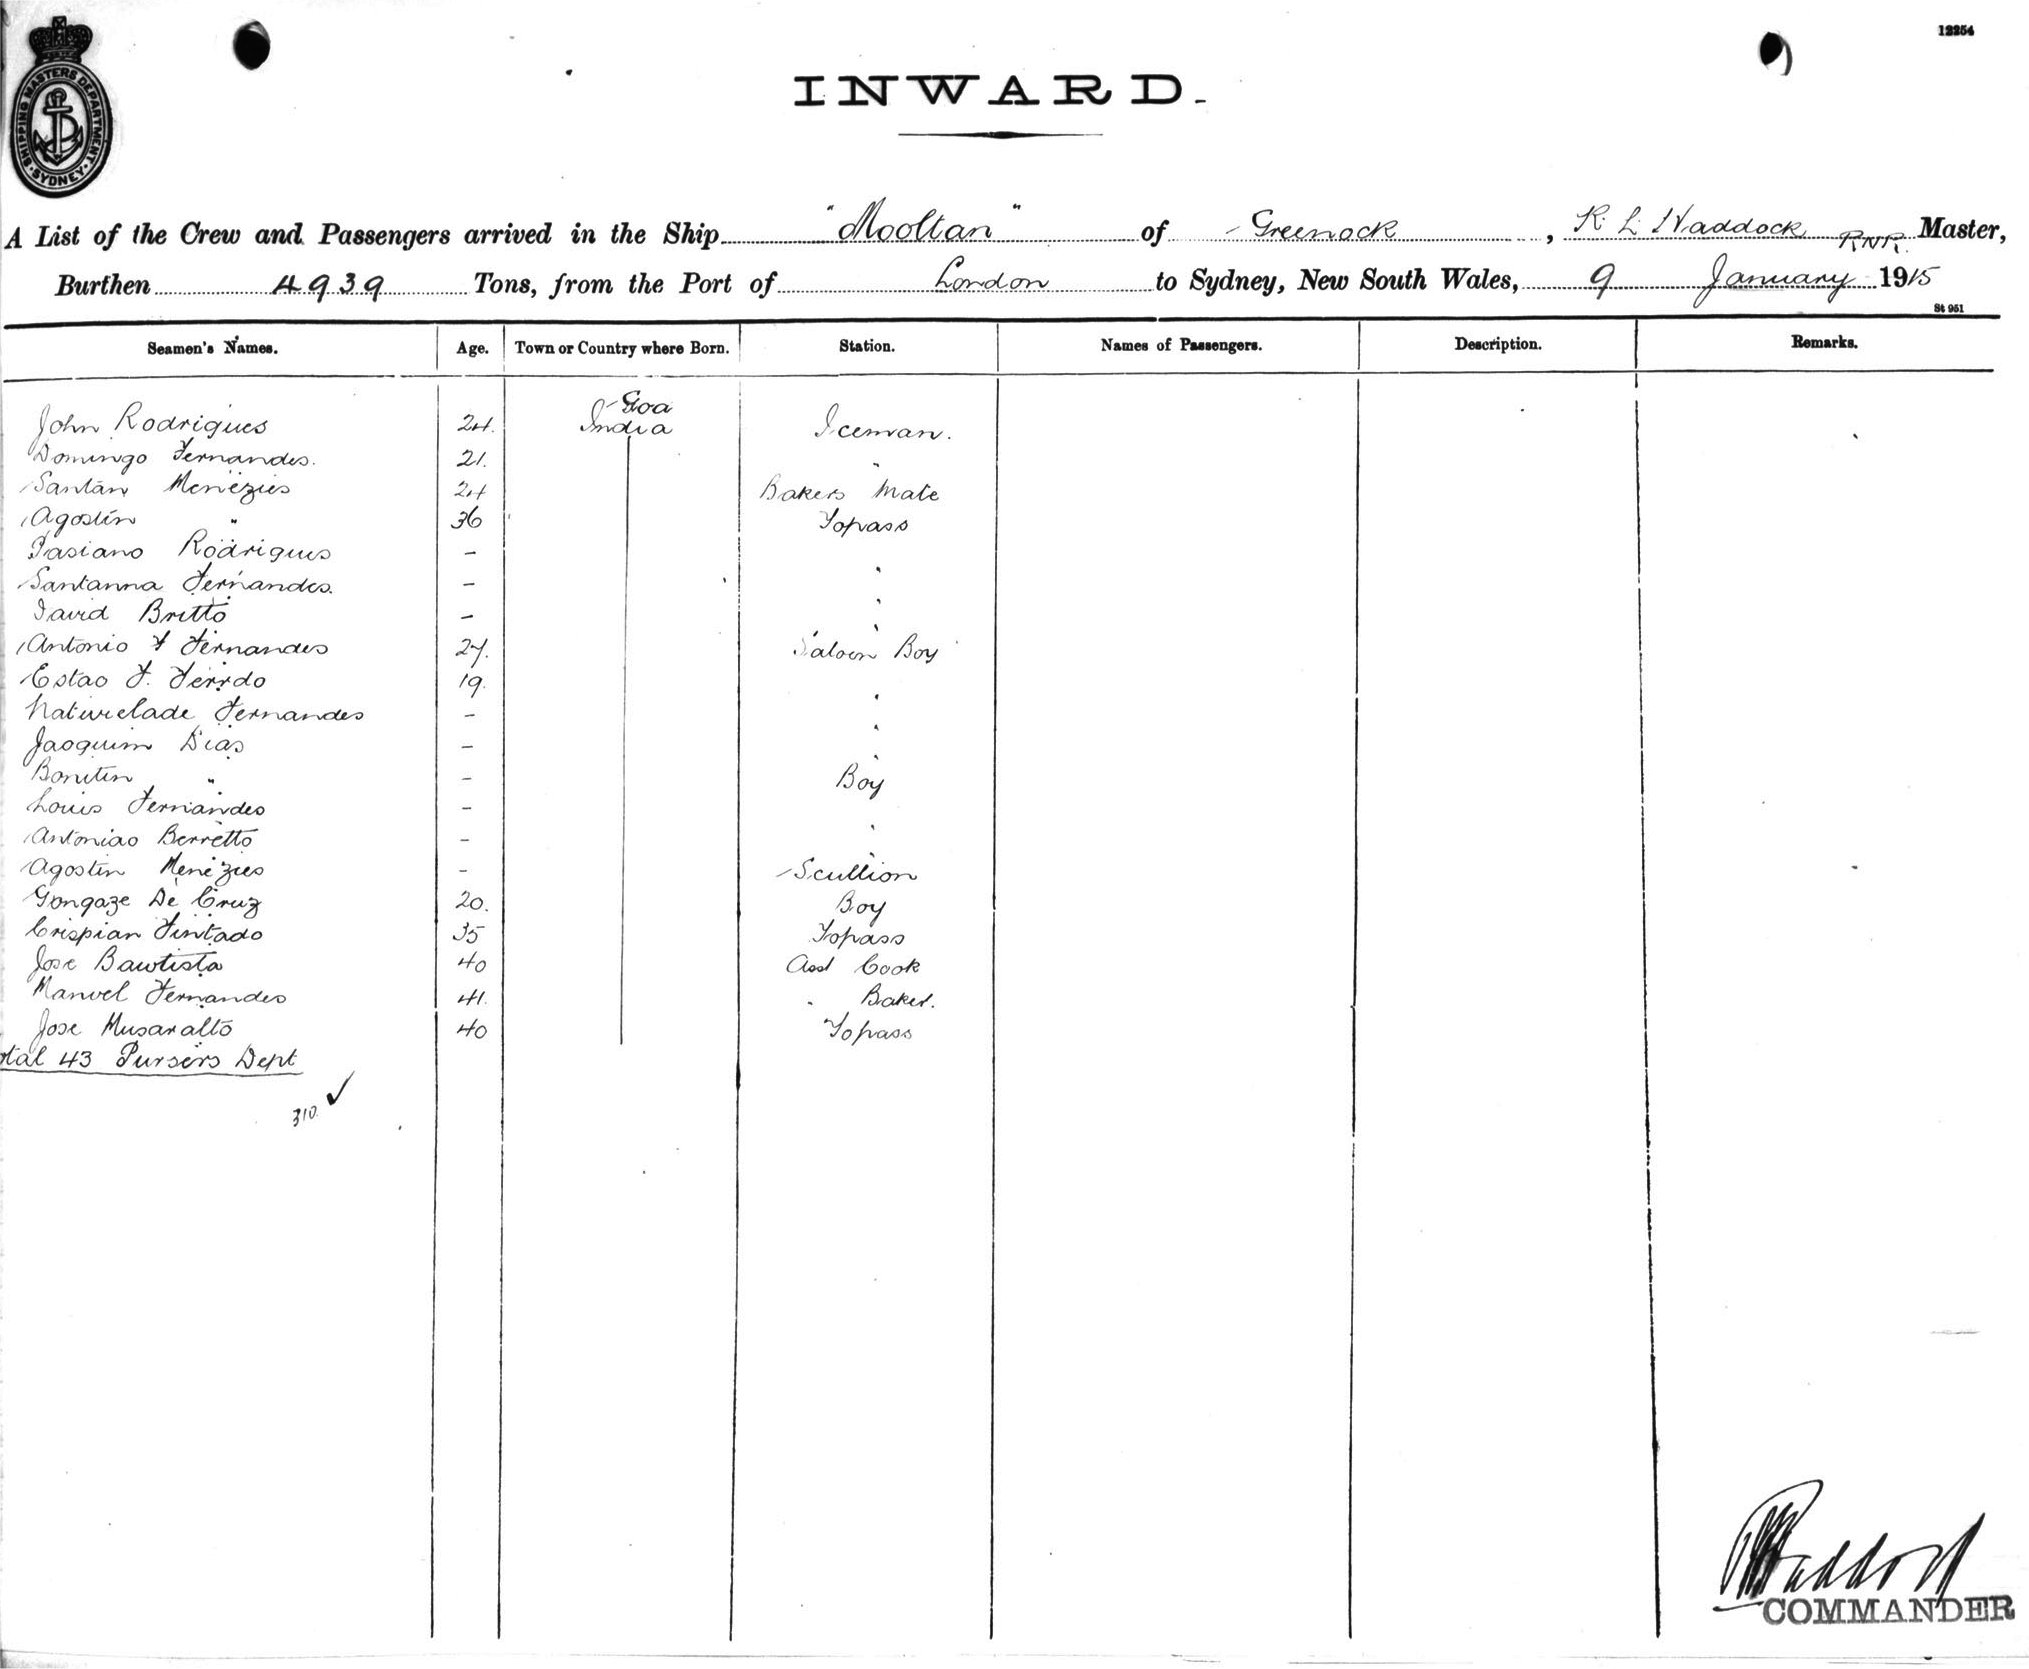 12254
SHIPPING MASTERS DEPARTMENT
SYDNEY
INWARD.
A List of the Crew and Passengers arrived in the Ship "Mooltan" of Greenock, R L Haddock RNR. Master,
Burthen 4939 Tons, from the Port of London to Sydney, New South Wales, 9 January 1915
St 951
Seamen's Names. Age. Town or Country where Born. Station. Names of Passengers. Description. Remarks.
Goa
John Rodrigues 24. India Iceman.
Domingo Fernandes. 21. "
Santan Menezies 24 Bakers Mate
Agostin " 36 Topass
Rodrigues - "
Santanna Fernandes. - "
David Britto - "
Antonio F Fernandes 27. Saloon Boy
Estao F. 19. "
Fernandes - "
Jaoquim Dias - "
Bonitin " - Boy
Louis Fernandes - "
Antoniao Berretto - "
Agostin Menezies - Scullion
Gongaze De Cruz 20. Boy
Crispian Fintado 35 Topass
Jose Bawtista 40 Asst Cook
Manvel Fernandes 41. " Baker.
Jose Musaralto 40 Topass
otal 43 Pursers Dept
310. ✓
Haddock
COMMANDER